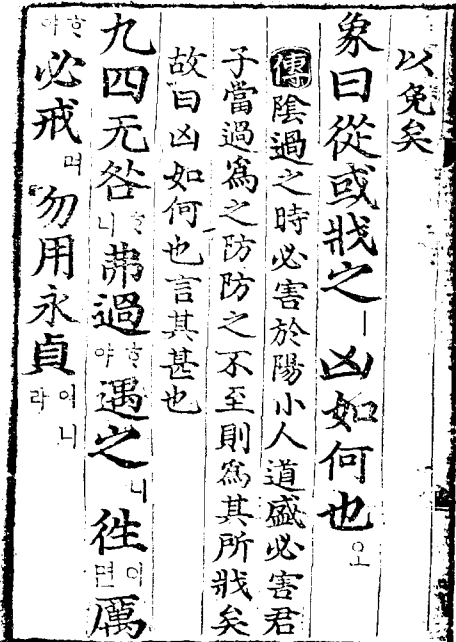 以免矣
象曰從或戕之ㅣ凶如何也오
傳陰過之時必害於陽小人道盛必害君
子當過爲之防防之不至則爲其所戕矣
故曰凶如何也言其甚也
九四无咎ᄒᆞ니弗過ᄒᆞ야遇之니徃이면厲
ᄒᆞ야必戒며勿用永貞이니라